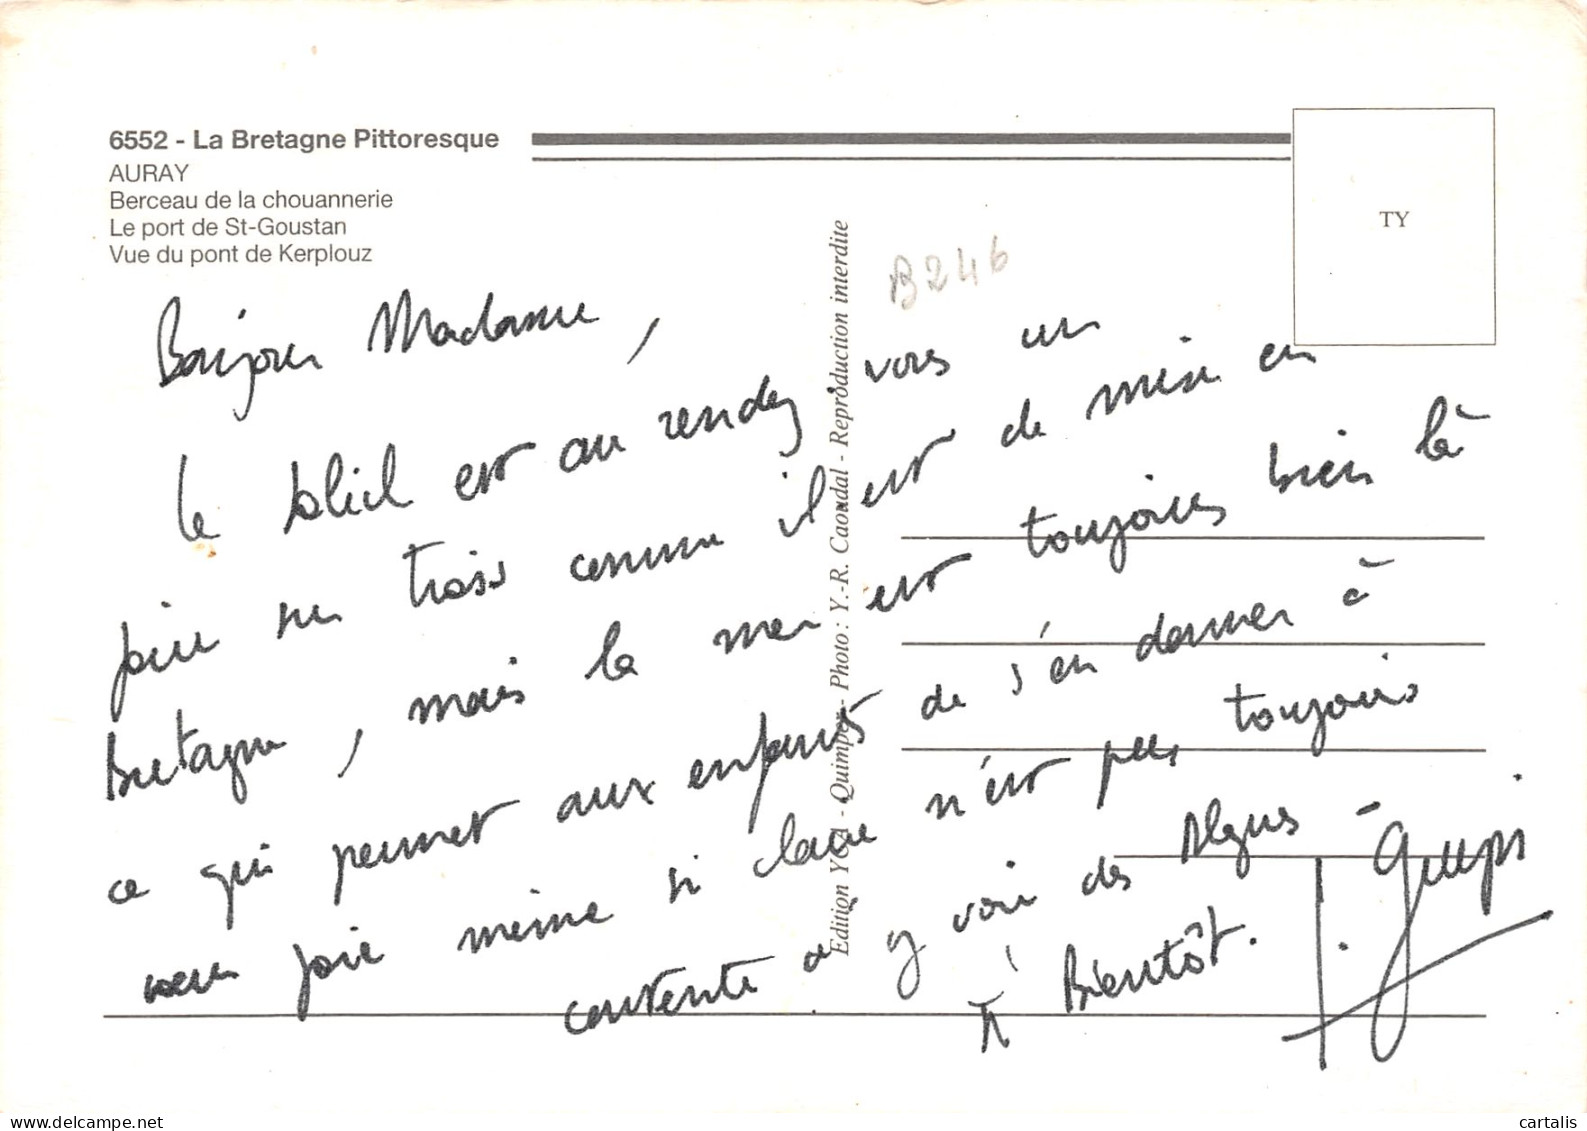 6552 - La Bretagne Pittoresque
AURAY
Berceau de la chouannerie
Le port de St-Goustan
Vue du pont de Kerplouz
TY
B246
Edition YCA - Quimper - Photo : Y.-R. Caoudal - Reproduction interdite
Bonjour Madame,
le soleil est au rendez vous un
jour sur trois comme il est de mise en
Bretagne, mais la mer est toujours bien là
ce qui permet aux enfants de s'en donner à
coeur joie même si n'est pas toujours
contente d'y voir des Algues -
A Bientôt.
cartalis
delcampe.net